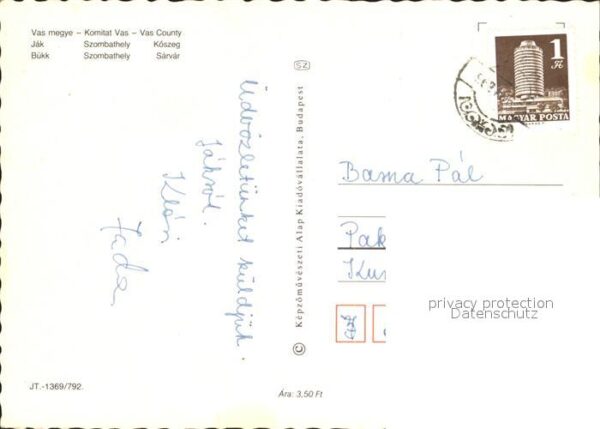 Vas megye – Komitat Vas – Vas County
Ják Szombathely Kőszeg
Bükk Szombathely Sárvár
Üdvözletünket küldjük
Jákról.
Klári
SZ
© Képzőművészeti Alap Kiadóvállalata, Budapest
1 Ft
MAGYAR POSTA
Bama Pál
Pak
privacy protection
Datenschutz
JT.-1369/792.
Ára: 3,50 Ft